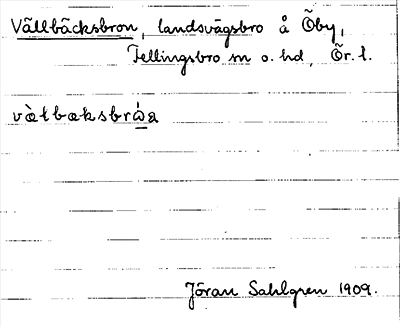 Vällbäcksbron, landsvägsbro å Öby,
Fellingsbro sn o. hd, Ör. l.
vætbæksbrωa
Jöran Sahlgren 1909.